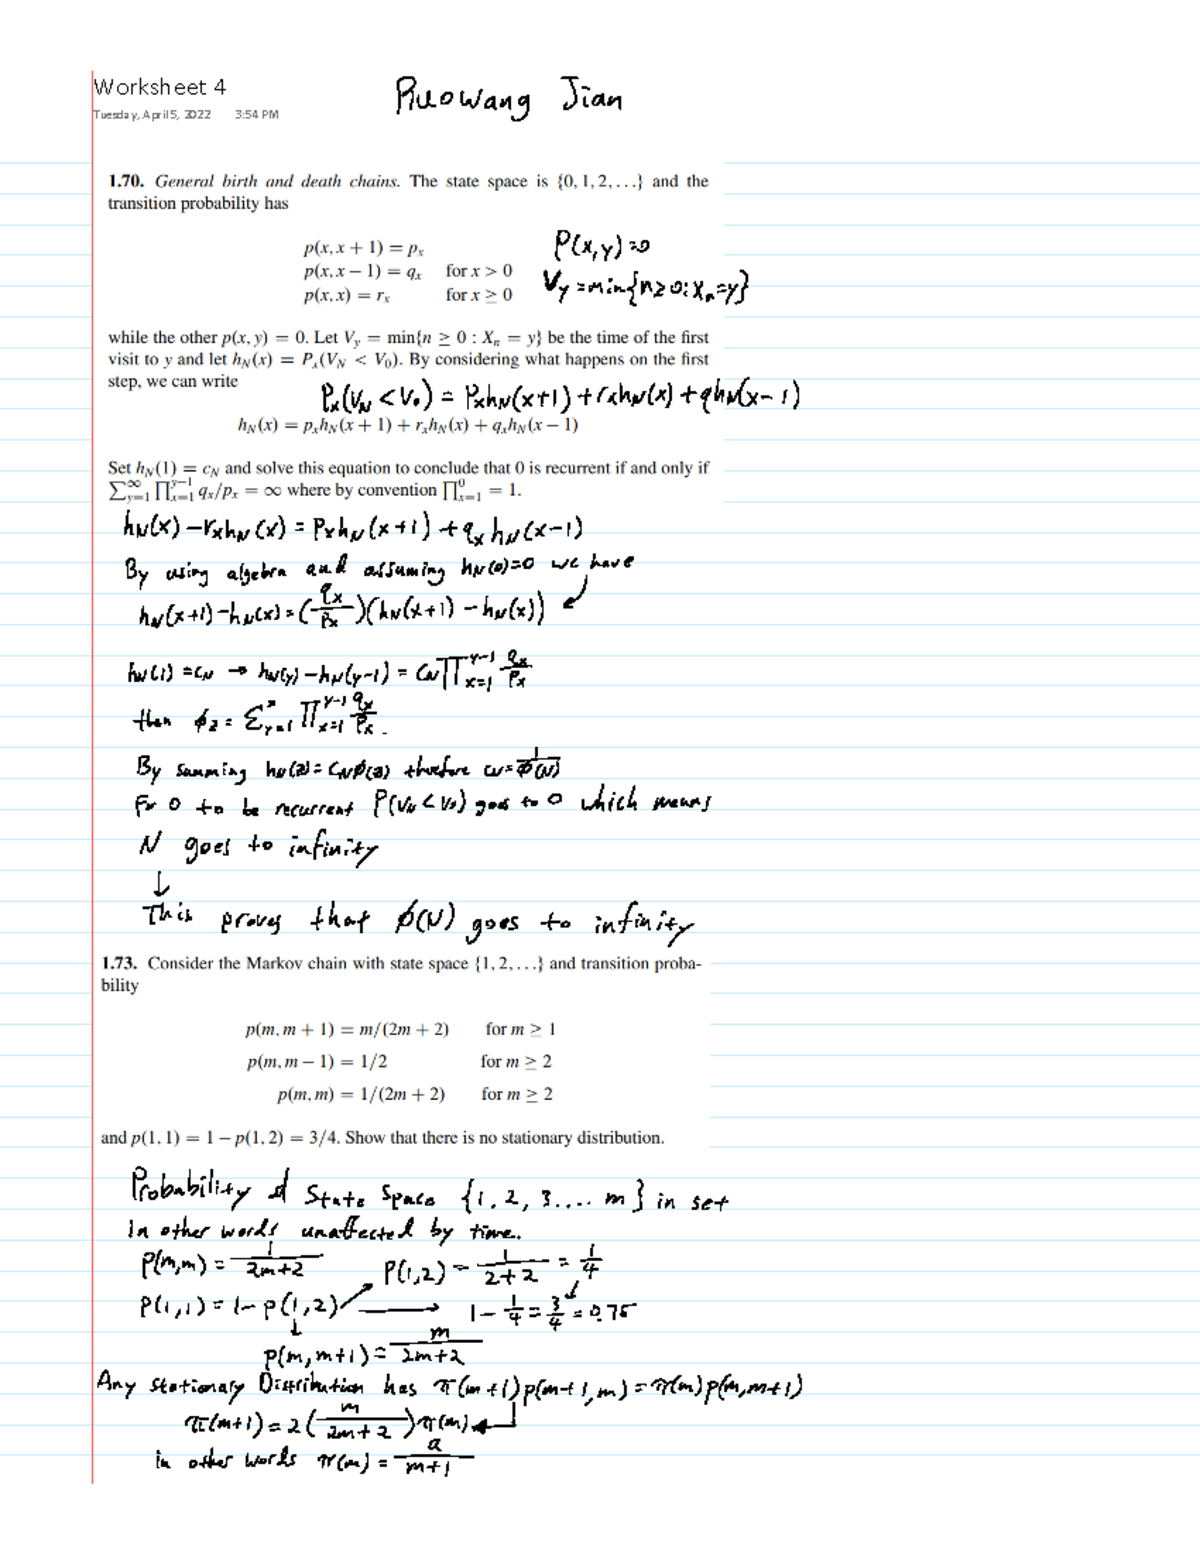 Worksheet 4
Tuesday, April 5, 2022 3:54 PM
Ruowang Jian
1.70. General birth and death chains. The state space is {0, 1, 2, . . .} and the
transition probability has
p(x, x + 1) = pₓ
p(x, x − 1) = qₓ for x > 0
p(x, x) = rₓ for x ≥ 0
P(x,y)=0
Vy = min{n≥0: Xn=y}
while the other p(x, y) = 0. Let Vy = min{n ≥ 0 : Xn = y} be the time of the first
visit to y and let hN(x) = Px(VN < V0). By considering what happens on the first
step, we can write
Px(VN < V0) = PxhN(x+1) + rxhN(x) + qhN(x-1)
hN(x) = pxhN(x + 1) + rxhN(x) + qxhN(x − 1)
Set hN(1) = cN and solve this equation to conclude that 0 is recurrent if and only if
∑_{y=1}^{∞} ∏_{x=1}^{y−1} qx/px = ∞ where by convention ∏_{x=1}^{0} = 1.
hN(x) - rxhN(x) = PxhN(x+1) + qxhN(x-1)
By using algebra and assuming hN(0)=0 we have
hN(x+1) - hN(x) = (qx/Px)(hN(x+1) - hN(x))
hN(1) = CN → hN(y) - hN(y-1) = CN ∏_{x=1}^{y-1} qx/Px
then ϕz = ∑_{y=1}^{z} ∏_{x=1}^{y-1} qx/Px.
By summing hN(z) = CNϕ(z) therefore CN = 1/ϕ(N)
For 0 to be recurrent P(VN < V0) goes to 0 which means
N goes to infinity
↓
This proves that ϕ(N) goes to infinity
1.73. Consider the Markov chain with state space {1, 2, . . .} and transition proba-
bility
p(m, m + 1) = m/(2m + 2) for m ≥ 1
p(m, m − 1) = 1/2 for m ≥ 2
p(m, m) = 1/(2m + 2) for m ≥ 2
and p(1, 1) = 1 − p(1, 2) = 3/4. Show that there is no stationary distribution.
Probability of State Space {1, 2, 3.... m} in set
In other words unaffected by time.
P(m,m) = 1/(2m+2) P(1,2) = 1/(2+2) = 1/4
P(1,1) = 1 - p(1,2) → 1 - 1/4 = 3/4 = 0.75
p(m, m+1) = m/(2m+2)
Any Stationary Distribution has π(m+1)p(m+1, m) = π(m)p(m, m+1)
π(m+1) = 2(m/(2m+2))π(m)
in other words π(m) = a/(m+1)